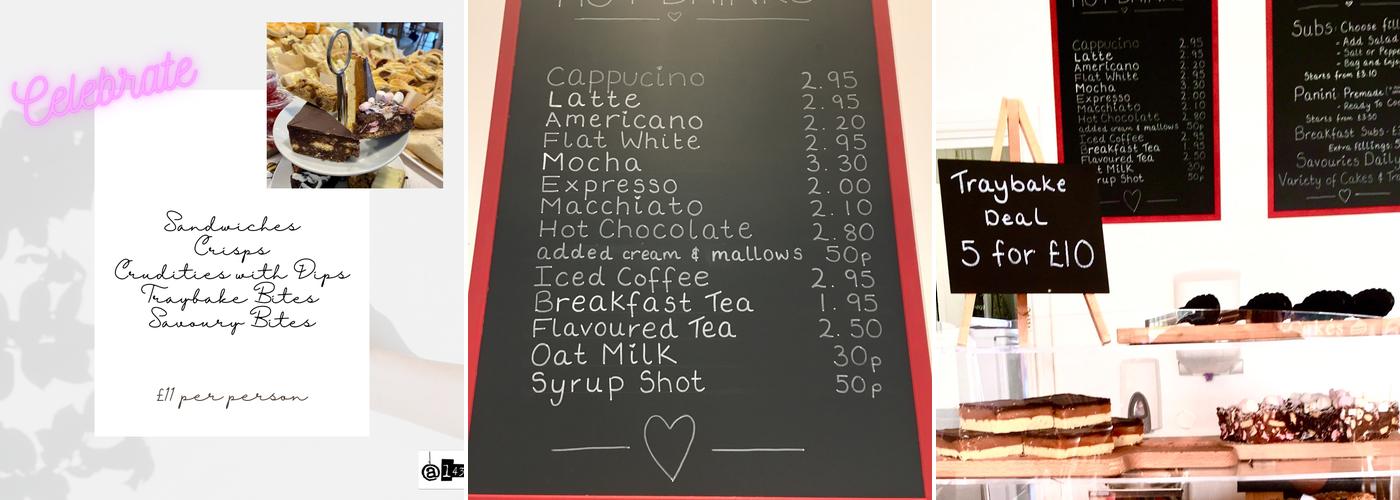 Celebrate
Sandwiches
Crisps
Crudities with Dips
Traybake Bites
Savoury Bites
£11 per person
@
HOT DRINKS
Cappucino 2.95
Latte 2.95
Americano 2.20
Flat White 2.95
Mocha 3.30
Expresso 2.00
Macchiato 2.10
Hot Chocolate 2.80
added cream & mallows 50p
Iced Coffee 2.95
Breakfast Tea 1.95
Flavoured Tea 2.50
Oat Milk 30p
Syrup Shot 50p
HOT DRINKS
Cappucino 2.95
Latte 2.95
Americano 2.20
Flat White 2.95
Mocha 3.30
Expresso 2.00
Macchiato 2.10
Hot Chocolate 2.80
added cream & mallows 50p
Iced Coffee 2.95
Breakfast Tea 1.95
Flavoured Tea 2.50
Milk 30p
Shot 50p
Traybake
Deal
5 for £10
Subs: Choose
- Add Salad
- Salt or
- Bag and
Starts from £3.10
Panini Premade
- Ready To
Starts from £3.50
Breakfast Subs:
Extra fillings
Savouries Daily
Variety of Cakes &